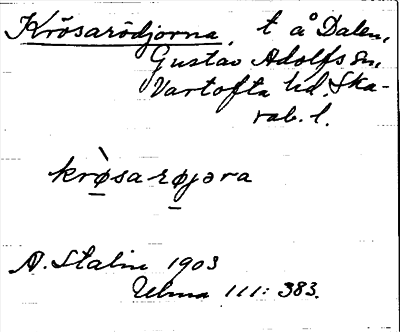 Krösarödjorna, t å Dalen,
Gustav Adolfs sn,
Vartofta hd. Ska-
rab. l.
krø̀sarøjəra
A. Stalin 1903
Ulma 111: 383.